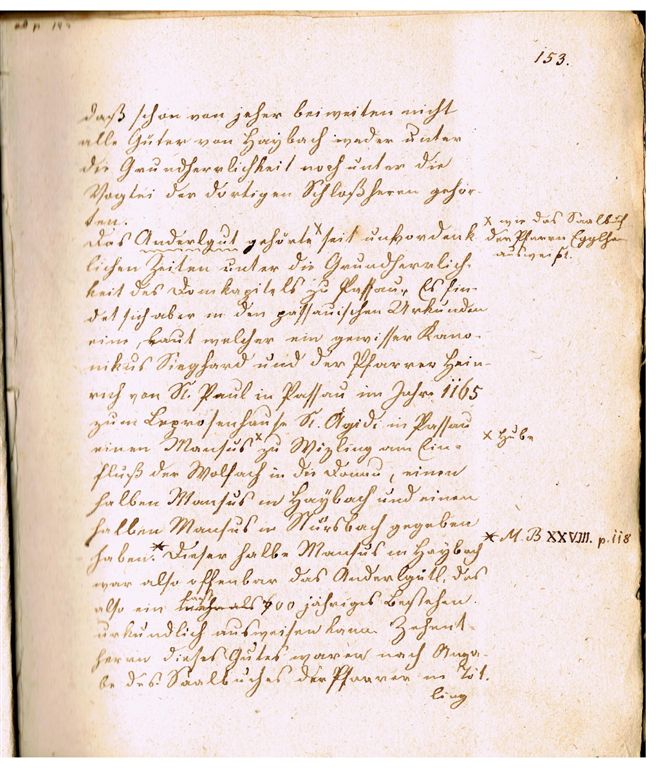 153.
daß schon von jeher bei weiten nicht
alle Güter von Haybach weder unter
die Grundherrlichkeit noch unter die
Vogtei der dortigen Schloßherrn gehör-
ten.
Das Anderlgut gehörte x seit unvordenk
lichen Zeiten unter die Grundherrlich-
keit des Domkapitels zu Passau. Es fin-
det sich aber in den passauischen Urkunden
eine, laut welcher ein gewisser Kano-
nikus Sieghard und der Pfarrer Hein-
rich von St. Paul in Passau im Jahre 1165
zum Leprosenhause St. Ägidi in Passau
einen Mansus x zu Wizling am Ein-
fluß der Wolfach in die Donau, einen
halben Mansus in Haybach und einen
halben Mansus in Stürsbach gegeben
haben.* Dieser halbe Mansus in Haybach
war also offenbar das Anderlgütl, das
also ein 700 jähriges Bestehen
urkundlich ausweisen kann. Zehent-
herrn dieses Gutes waren nach Anga-
be des Saalbuches der Pfarrer in Töt-
ling
x wie das Saalbuch
der Pfarrei
ausweißt.
x Hube
* M. B XXVIII. p. 118